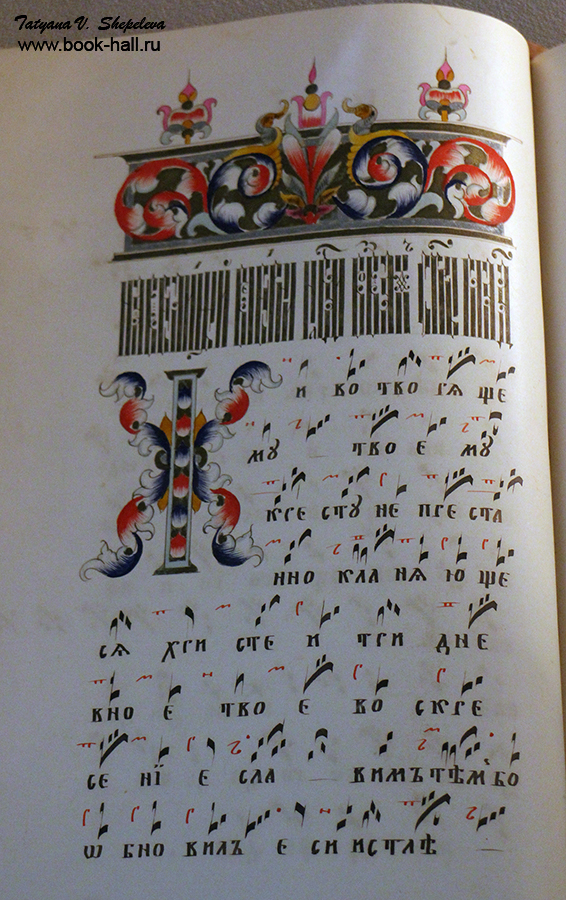 Tatyana V. Shepeleva
www.book-hall.ru
Ж и во тво рѧ ще
му тво е му
кре сту не пре ста
нно кла нѧ ю ще
сѧ хри сте и три дне
вно е тво е во скре
се нї е сла вимъ тѣмъ бо
ѡ бно вилъ е си истлѣ